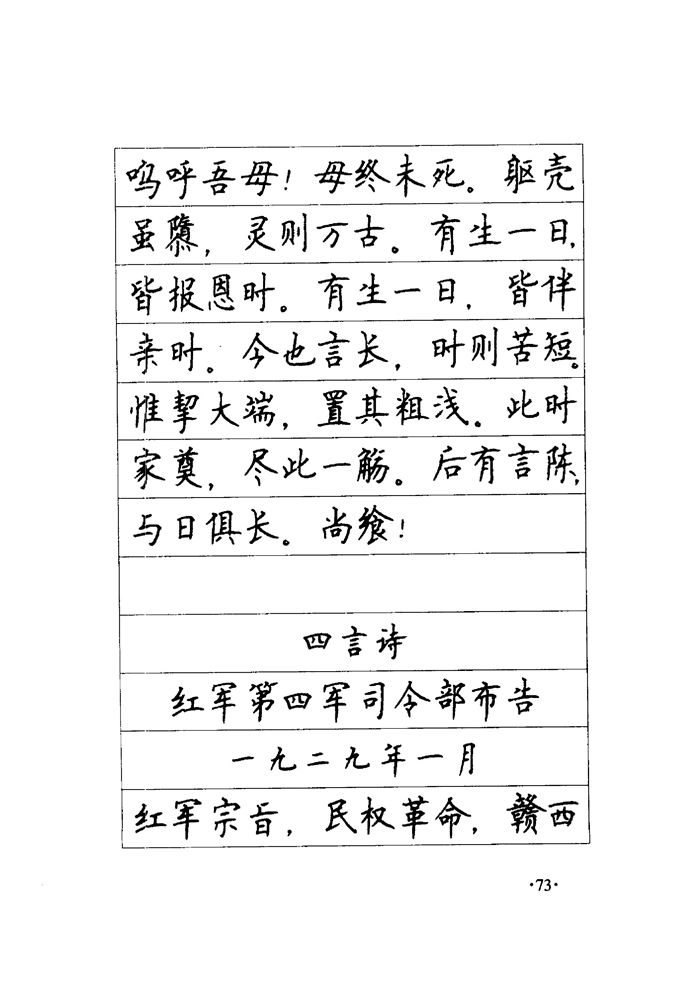 呜呼吾母！母终未死。躯壳
虽隳，灵则万古。有生一日，
皆报恩时。有生一日，皆伴
亲时。今也言长，时则苦短。
惟挈大端，置其粗浅。此时
家奠，尽此一觞。后有言陈，
与日俱长。尚飨！
四言诗
红军第四军司令部布告
一九二九年一月
红军宗旨，民权革命，赣西
·73·